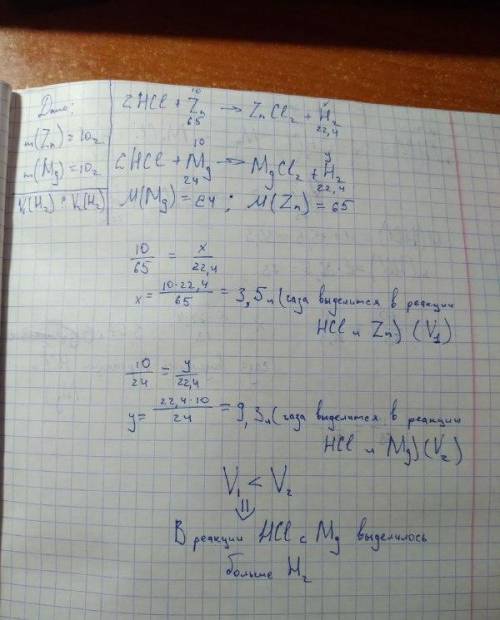 Дано:
m(Zn)=10г
m(Mg)=10г
V₁(H₂) * V₂(H₂)
10 x
2HCl + Zn → ZnCl₂ + H₂
65 22,4
10 y
2HCl + Mg → MgCl₂ + H₂
24 22,4
M(Mg) = 24 ; M(Zn) = 65
10/65 = x/22,4
x = 10·22,4/65 = 3,5л (газа выделится в реакции
HCl и Zn) (V₁)
10/24 = y/22,4
y = 22,4·10/24 = 9,3л (газа выделится в реакции
HCl и Mg) (V₂)
V₁ < V₂
⇓
В реакции HCl с Mg выделилось
больше H₂